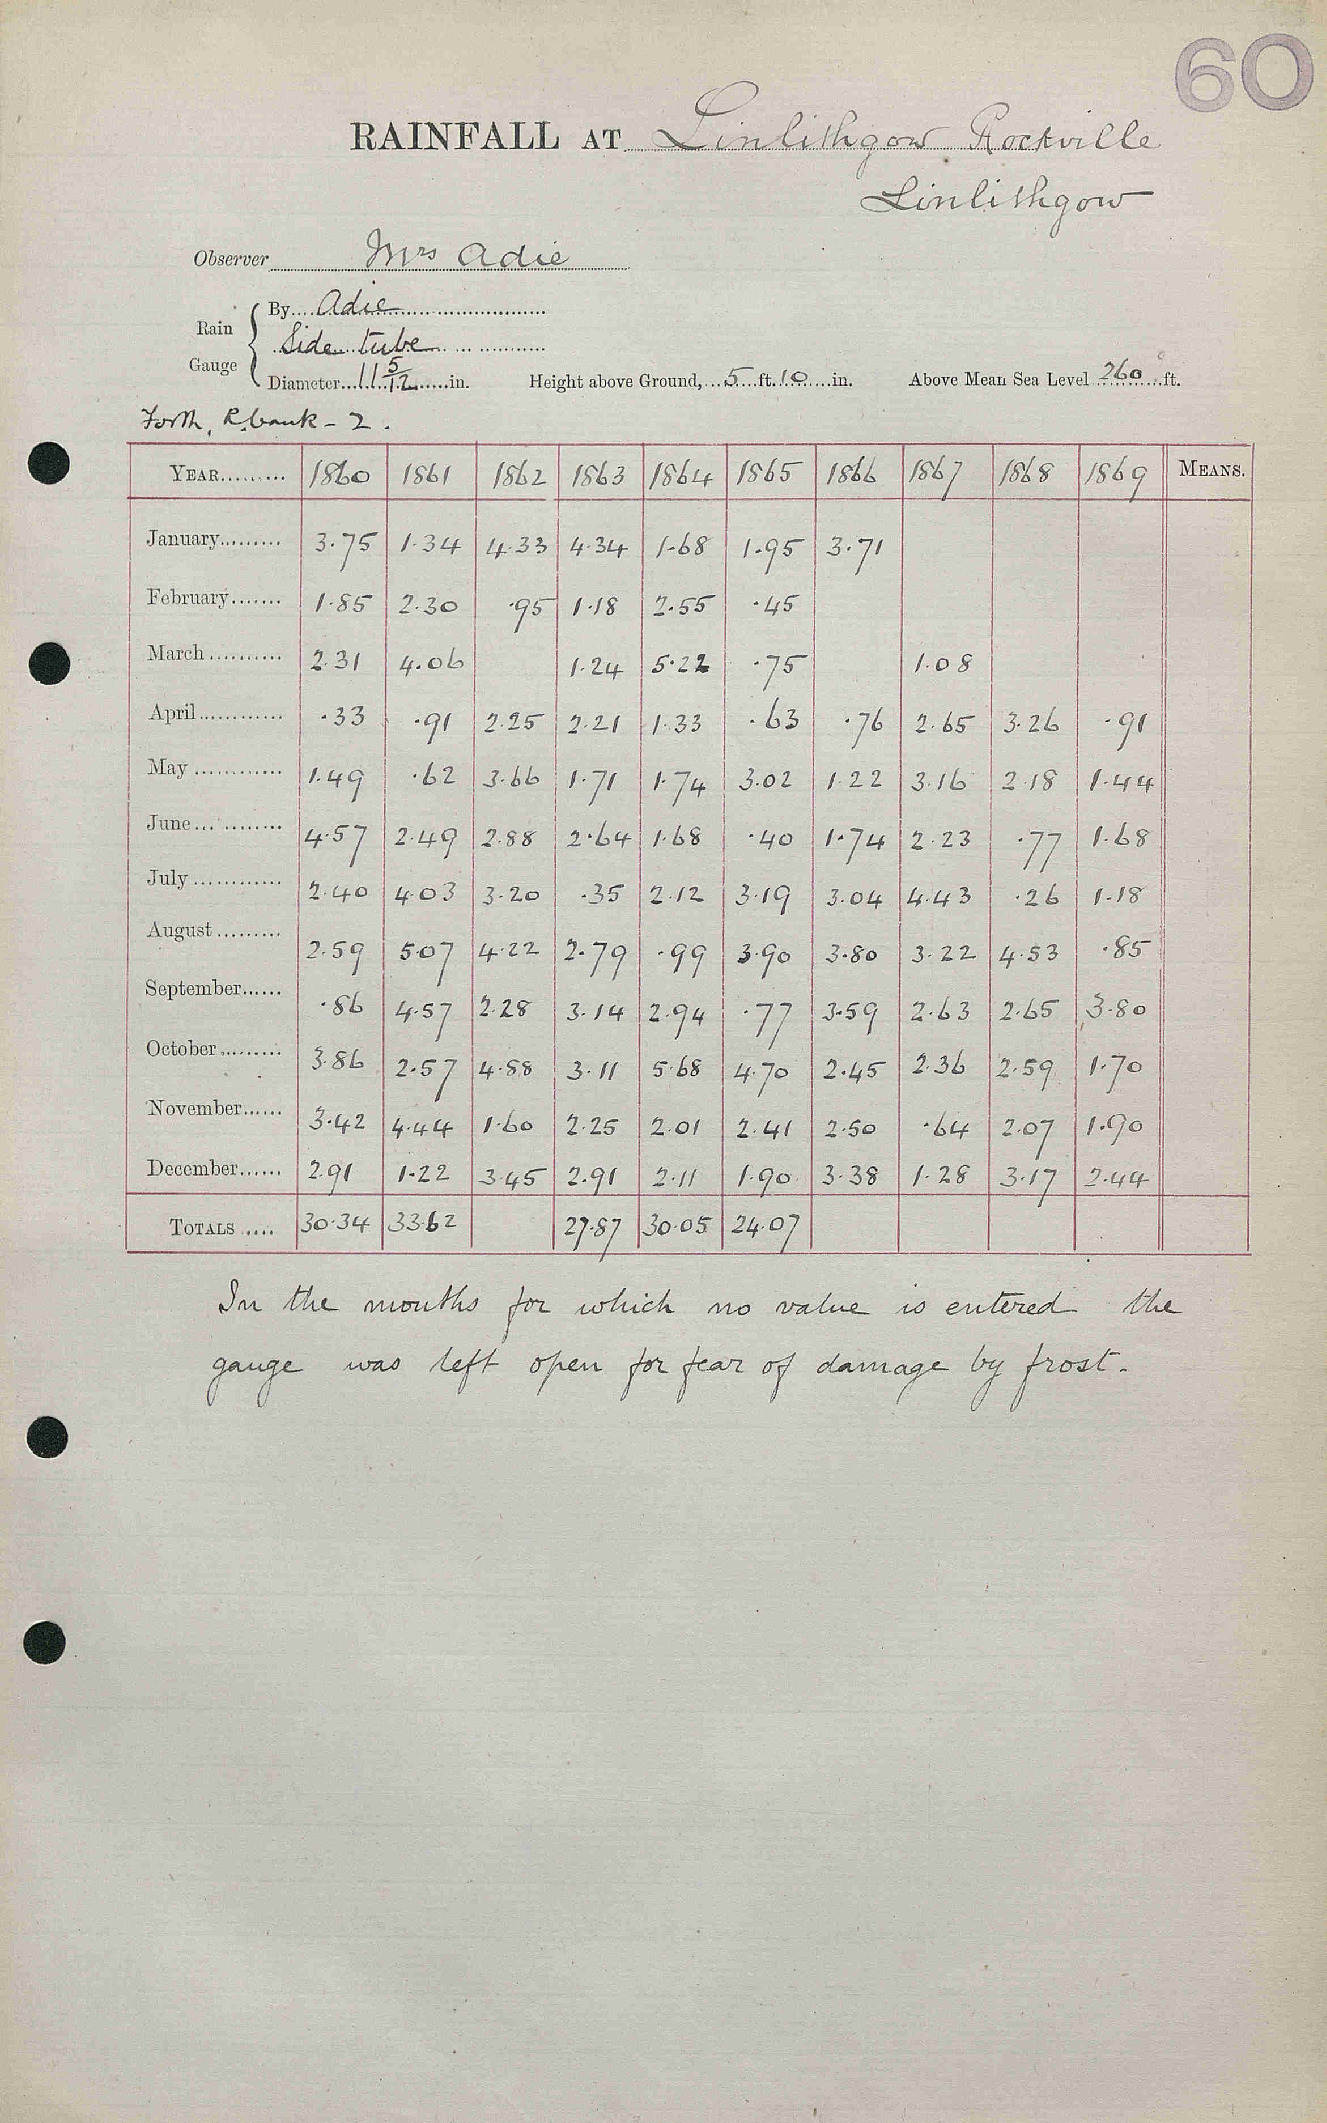 60
RAINFALL AT Linlithgow Rockville
Linlithgow
Observer Mrs Adie
Rain Gauge { By Adie
Side tube
Diameter 11 5/12 in. Height above Ground, 5 ft. 10 in. Above Mean Sea Level 260 ft.
Forth, R. bank - 2.
YEAR 1860 1861 1862 1863 1864 1865 1866 1867 1868 1869 MEANS.
January 3.75 1.34 4.33 4.34 1.68 1.95 3.71
February 1.85 2.30 .95 1.18 2.55 .45
March 2.31 4.06 1.24 5.22 .75 1.08
April .33 .91 2.25 2.21 1.33 .63 .76 2.65 3.26 .91
May 1.49 .62 3.66 1.71 1.74 3.02 1.22 3.16 2.18 1.44
June 4.57 2.49 2.88 2.64 1.68 .40 1.74 2.23 .77 1.68
July 2.40 4.03 3.20 .35 2.12 3.19 3.04 4.43 .26 1.18
August 2.59 5.07 4.22 2.79 .99 3.90 3.80 3.22 4.53 .85
September .86 4.57 2.28 3.14 2.94 .77 3.59 2.63 2.65 3.80
October 3.86 2.57 4.88 3.11 5.68 4.70 2.45 2.36 2.59 1.70
November 3.42 4.44 1.60 2.25 2.01 2.41 2.50 .64 2.07 1.90
December 2.91 1.22 3.45 2.91 2.11 1.90 3.38 1.28 3.17 2.44
TOTALS 30.34 33.62 27.87 30.05 24.07
In the months for which no value is entered the
gauge was left open for fear of damage by frost.